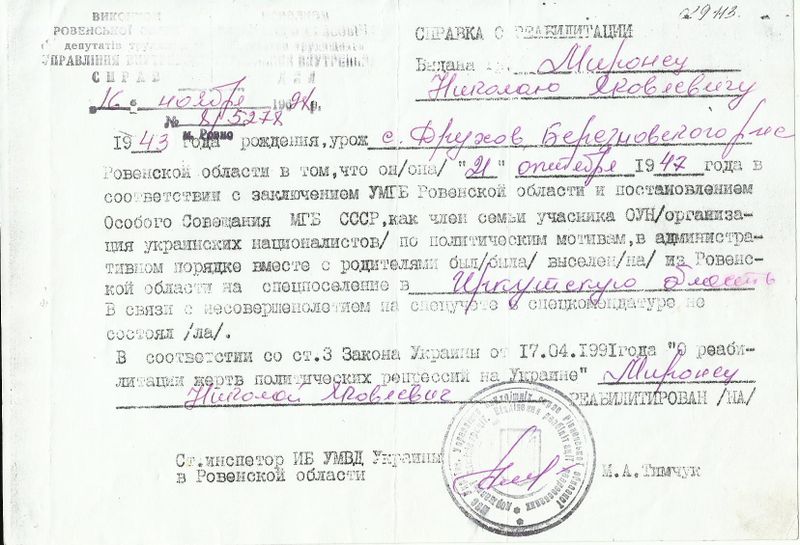 29 нз.
ВИКОНКОМ
РОВЕНСЬКОЇ
депутатів трудящих
УПРАВЛІННЯ ВНУТРІШНІХ
СПРАВ
СПРАВКА О РЕАБИЛИТАЦИИ
Выдана гр. Миронец
Николаю Яковлевичу
16 ноября 199 г.
№ 8/5278
м. Ровно
1943 года рождения, урож с. Друхов Березновского р-на
Ровенской области в том, что он/она/ "21" октября 1947 года в
соответствии с заключением УМГБ Ровенской области и постановлением
Особого Совещания МГБ СССР, как член семьи учасника ОУН/организа-
ция украинских националистов/ по политическим мотивам, в администра-
тивном порядке вместе с родителями был/была/ выселен/на/ из Ровенс-
кой области на спецпоселение в Иркутскую область
В связи с несовершенолетием на спецучете в спецкомендатуре не
состоял /ла/.
В соответствии со ст.3 Закона Украины от 17.04.1991года "О реаби-
литации жертв политических репрессий на Украине" Миронец
Николай Яковлевич РЕАБИЛИТИРОВАН /НА/
Ст.инспетор ИБ УМВД Украины
в Ровенской области
М.А.Тимчук